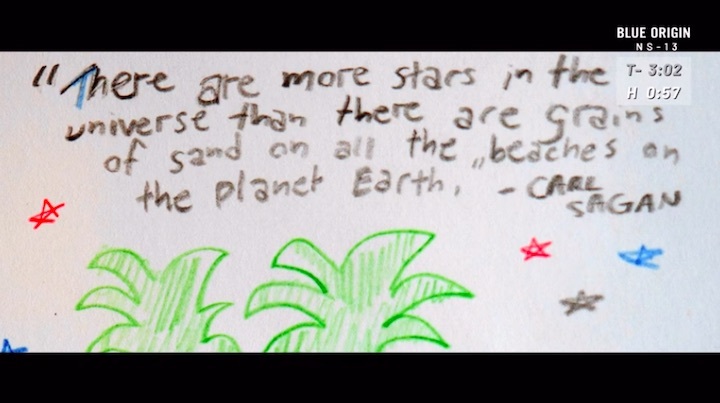 BLUE ORIGIN
NS-13
T- 3:02
H 0:57
"There are more stars in the
universe than there are grains
of sand on all the beaches on
the planet Earth." - CARL
SAGAN